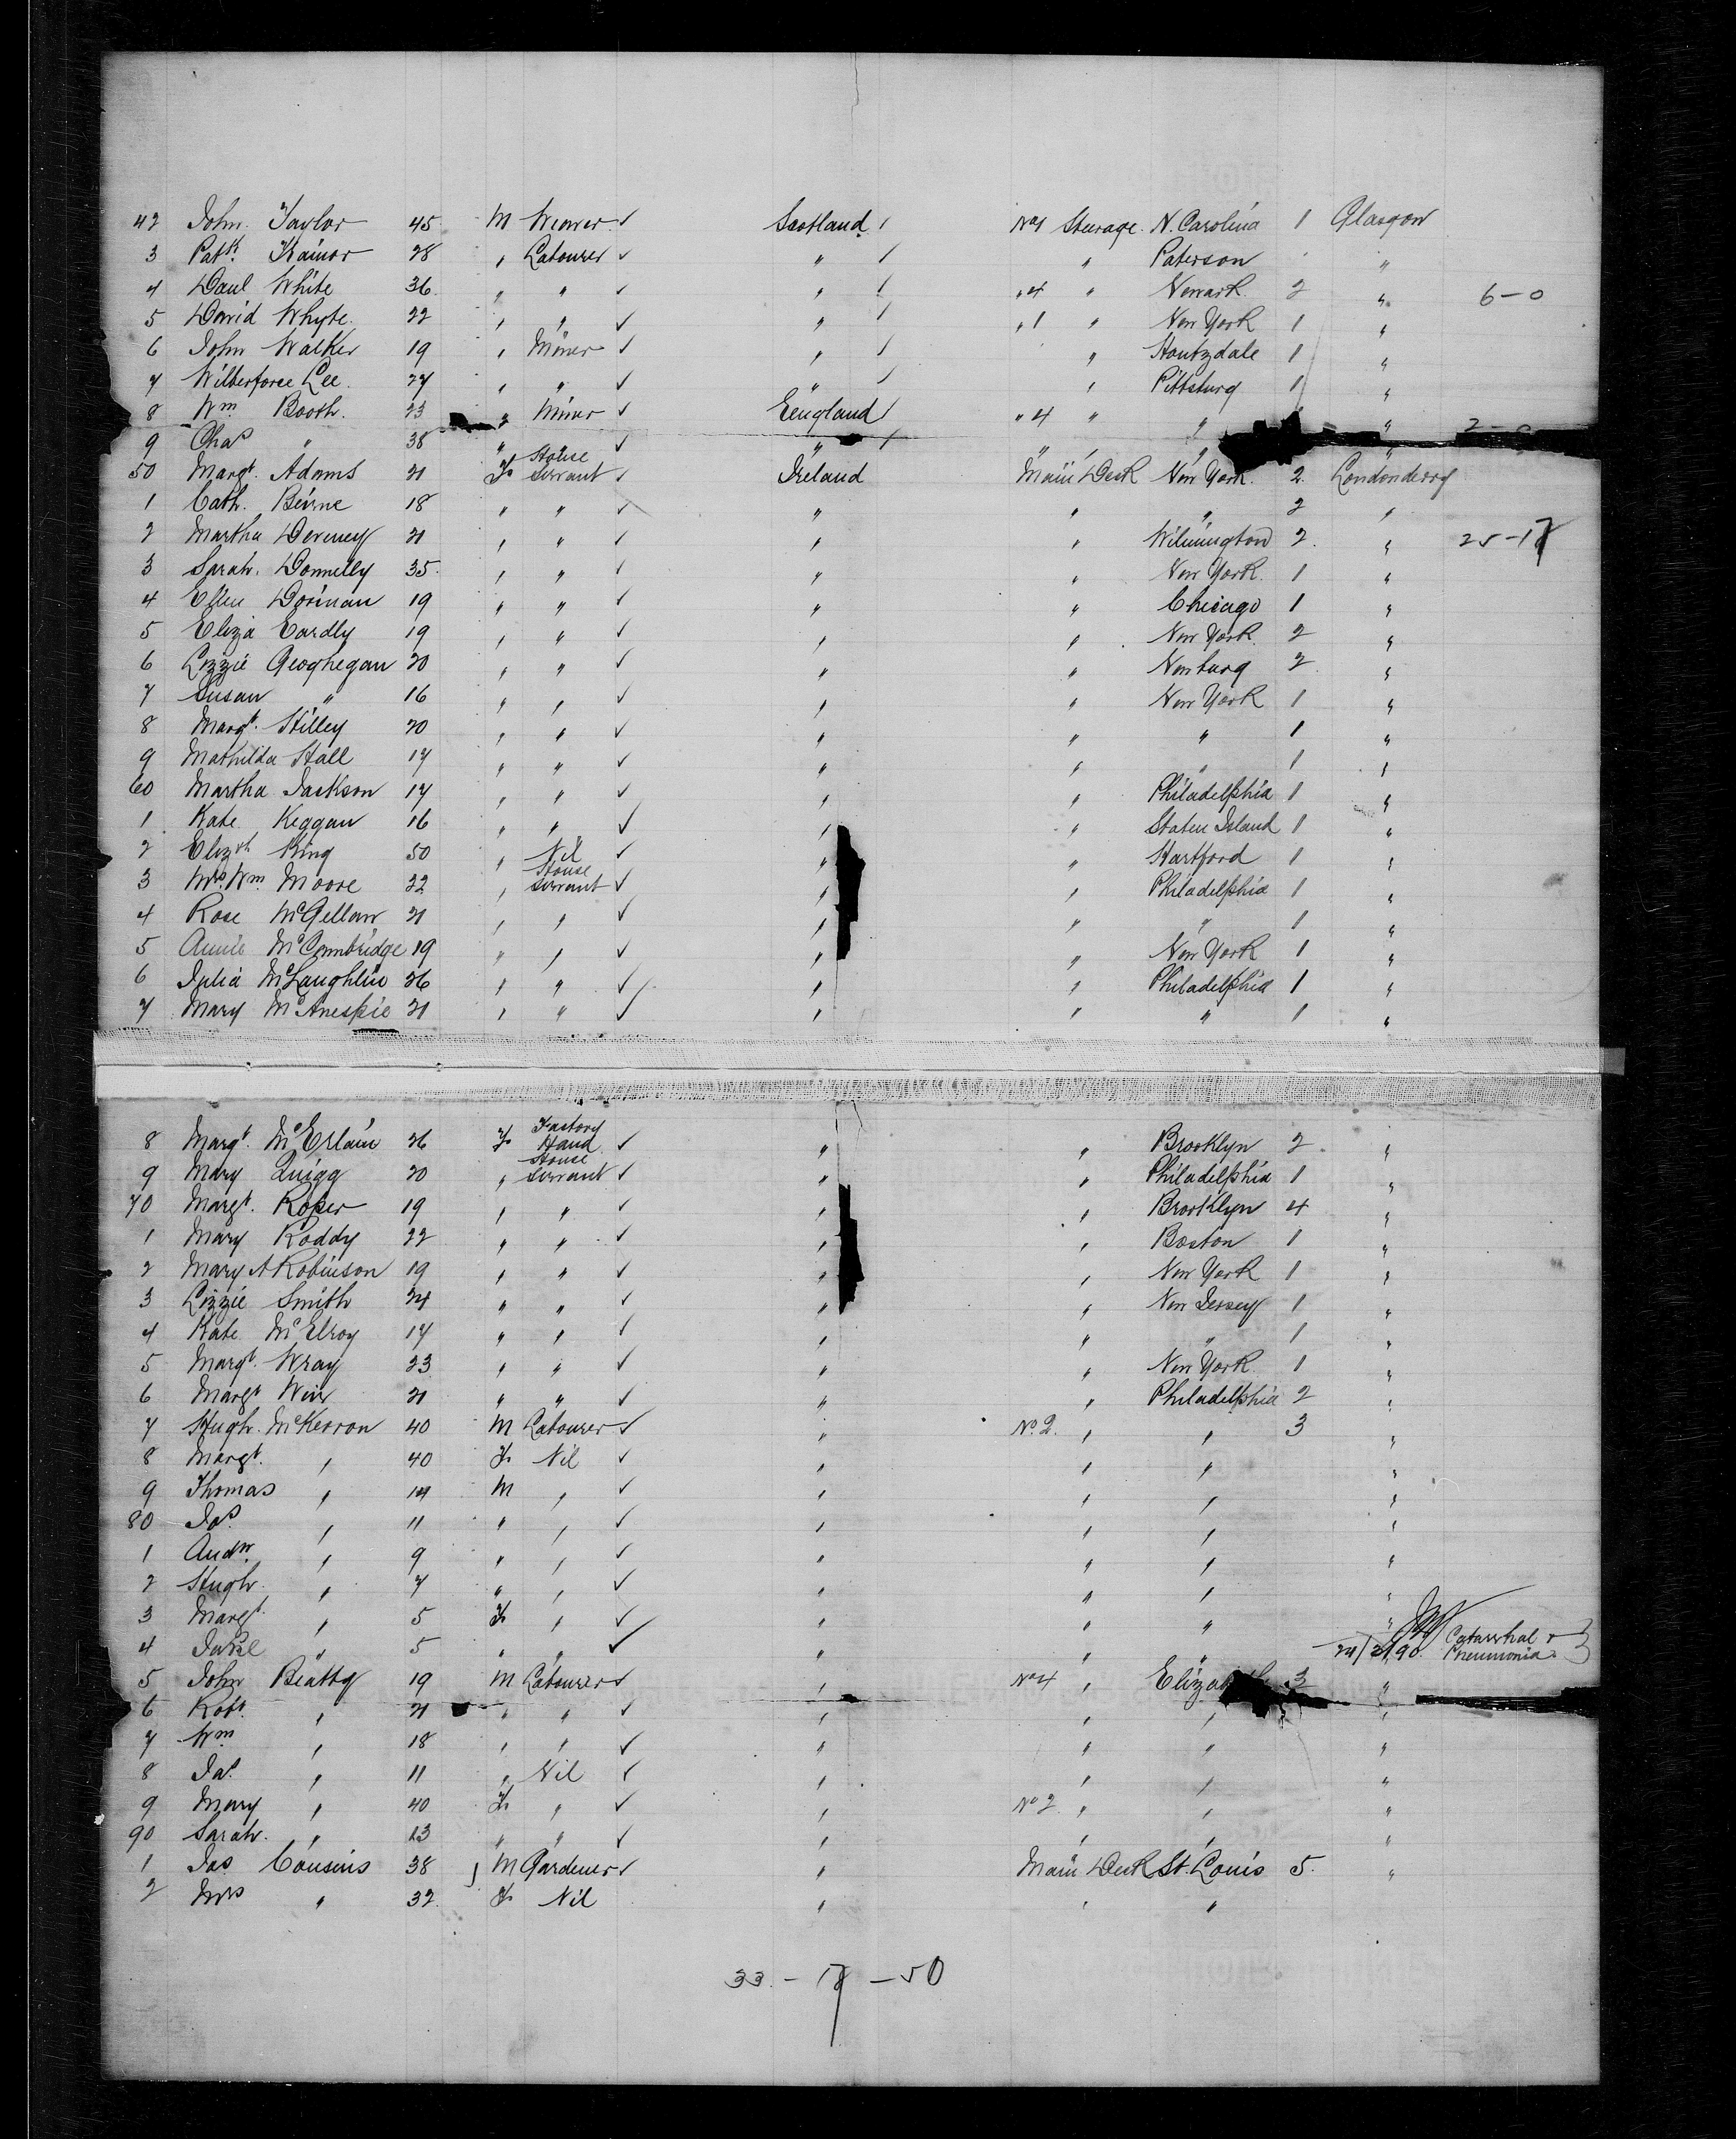 42 John Taylor 45 M Weaver ✓ Scotland No 1 Steerage N. Carolina 1 Glasgow
3 Patk. Trainor 28 " Labourer ✓ " " Paterson " "
4 Danl White 36 " " ✓ " " 4 " Newark 2 " 6-0
5 David Whyte 22 " " ✓ " " 1 " New York 1 "
6 John Walker 19 " Miner ✓ " " Houtzdale 1 "
7 Wilberforce Lee 27 " " ✓ " " Pittsburg 1 "
8 Wm Booth 23 " Miner ✓ England " 4 " " "
9 Chas " 38 " " ✓ " " " " "
50 Margt. Adams 21 F House Servant ✓ Ireland Main Deck New York 2 Londonderry
1 Cath. Beirne 18 " " ✓ " " " 2 "
2 Martha Deveney 21 " " ✓ " " Wilmington 2 " 25-17
3 Sarah Donnelly 35 " " ✓ " " New York 1 "
4 Ellen Dorinan 19 " " ✓ " " Chicago 1 "
5 Eliza Eardly 19 " " ✓ " " New York 2 "
6 Lizzie Geoghegan 20 " " ✓ " " Newburg 2 "
7 Susan " 16 " " ✓ " " New York 1 "
8 Margt. Hilley 20 " " ✓ " " " 1 "
9 Mathilda Hall 17 " " ✓ " " " 1 "
60 Martha Jackson 17 " " ✓ " " Philadelphia 1 "
1 Kate Keggan 16 " " ✓ " " Staten Island 1 "
2 Elizth King 50 " Nil ✓ " " Hartford 1 "
3 Mrs Wm Moore 22 " House Servant ✓ " " Philadelphia 1 "
4 Rose McGellan 21 " " ✓ " " " 1 "
5 Annie McConnbridge 19 " " ✓ " " New York 1 "
6 Julia McLaughlin 26 " " ✓ " " Philadelphia 1 "
7 Mary McAneskie 21 " " ✓ " " " 1 "
8 Margt. McErlain 26 F Factory Hand ✓ " " Brooklyn 2 "
9 Mary Quigg 20 " House Servant ✓ " " Philadelphia 1 "
70 Margt. Roper 19 " " ✓ " " Brooklyn 4 "
1 Mary Roddy 22 " " ✓ " " Boston 1 "
2 Mary A Robinson 19 " " ✓ " " New York 1 "
3 Lizzie Smith 24 " " ✓ " " New Jersey 1 "
4 Kate McElroy 17 " " ✓ " " " 1 "
5 Margt. Wray 23 " " ✓ " " New York 1 "
6 Margt Weir 21 " " ✓ " " Philadelphia 2 "
7 Hugh McKerron 40 M Labourer ✓ " No 2 " " 3 "
8 Margt. " 40 F Nil ✓ " " " "
9 Thomas " 14 M " ✓ " " " "
80 Jas. " 11 " " ✓ " " " "
1 Andw. " 9 " " ✓ " " " "
2 Hugh " 7 " " ✓ " " " "
3 Margt. " 5 F " ✓ " " " "
4 " 5 " " ✓ " " " 24/2/90 Catarrhal Pneumonia
5 John Beatty 19 M Labourer ✓ " No 4 " Elizabeth 3 "
6 Robt. " 21 " " ✓ " " " "
7 Wm " 18 " " ✓ " " " "
8 Jas. " 11 " Nil ✓ " " " "
9 Mary " 40 F " ✓ " No 2 " " "
90 Sarah " 13 " " ✓ " " " "
1 Jas Cousins 38 M Gardener ✓ " Main Deck St. Louis 5 "
2 Mrs " 32 F Nil " " "
33 - 17 - 50